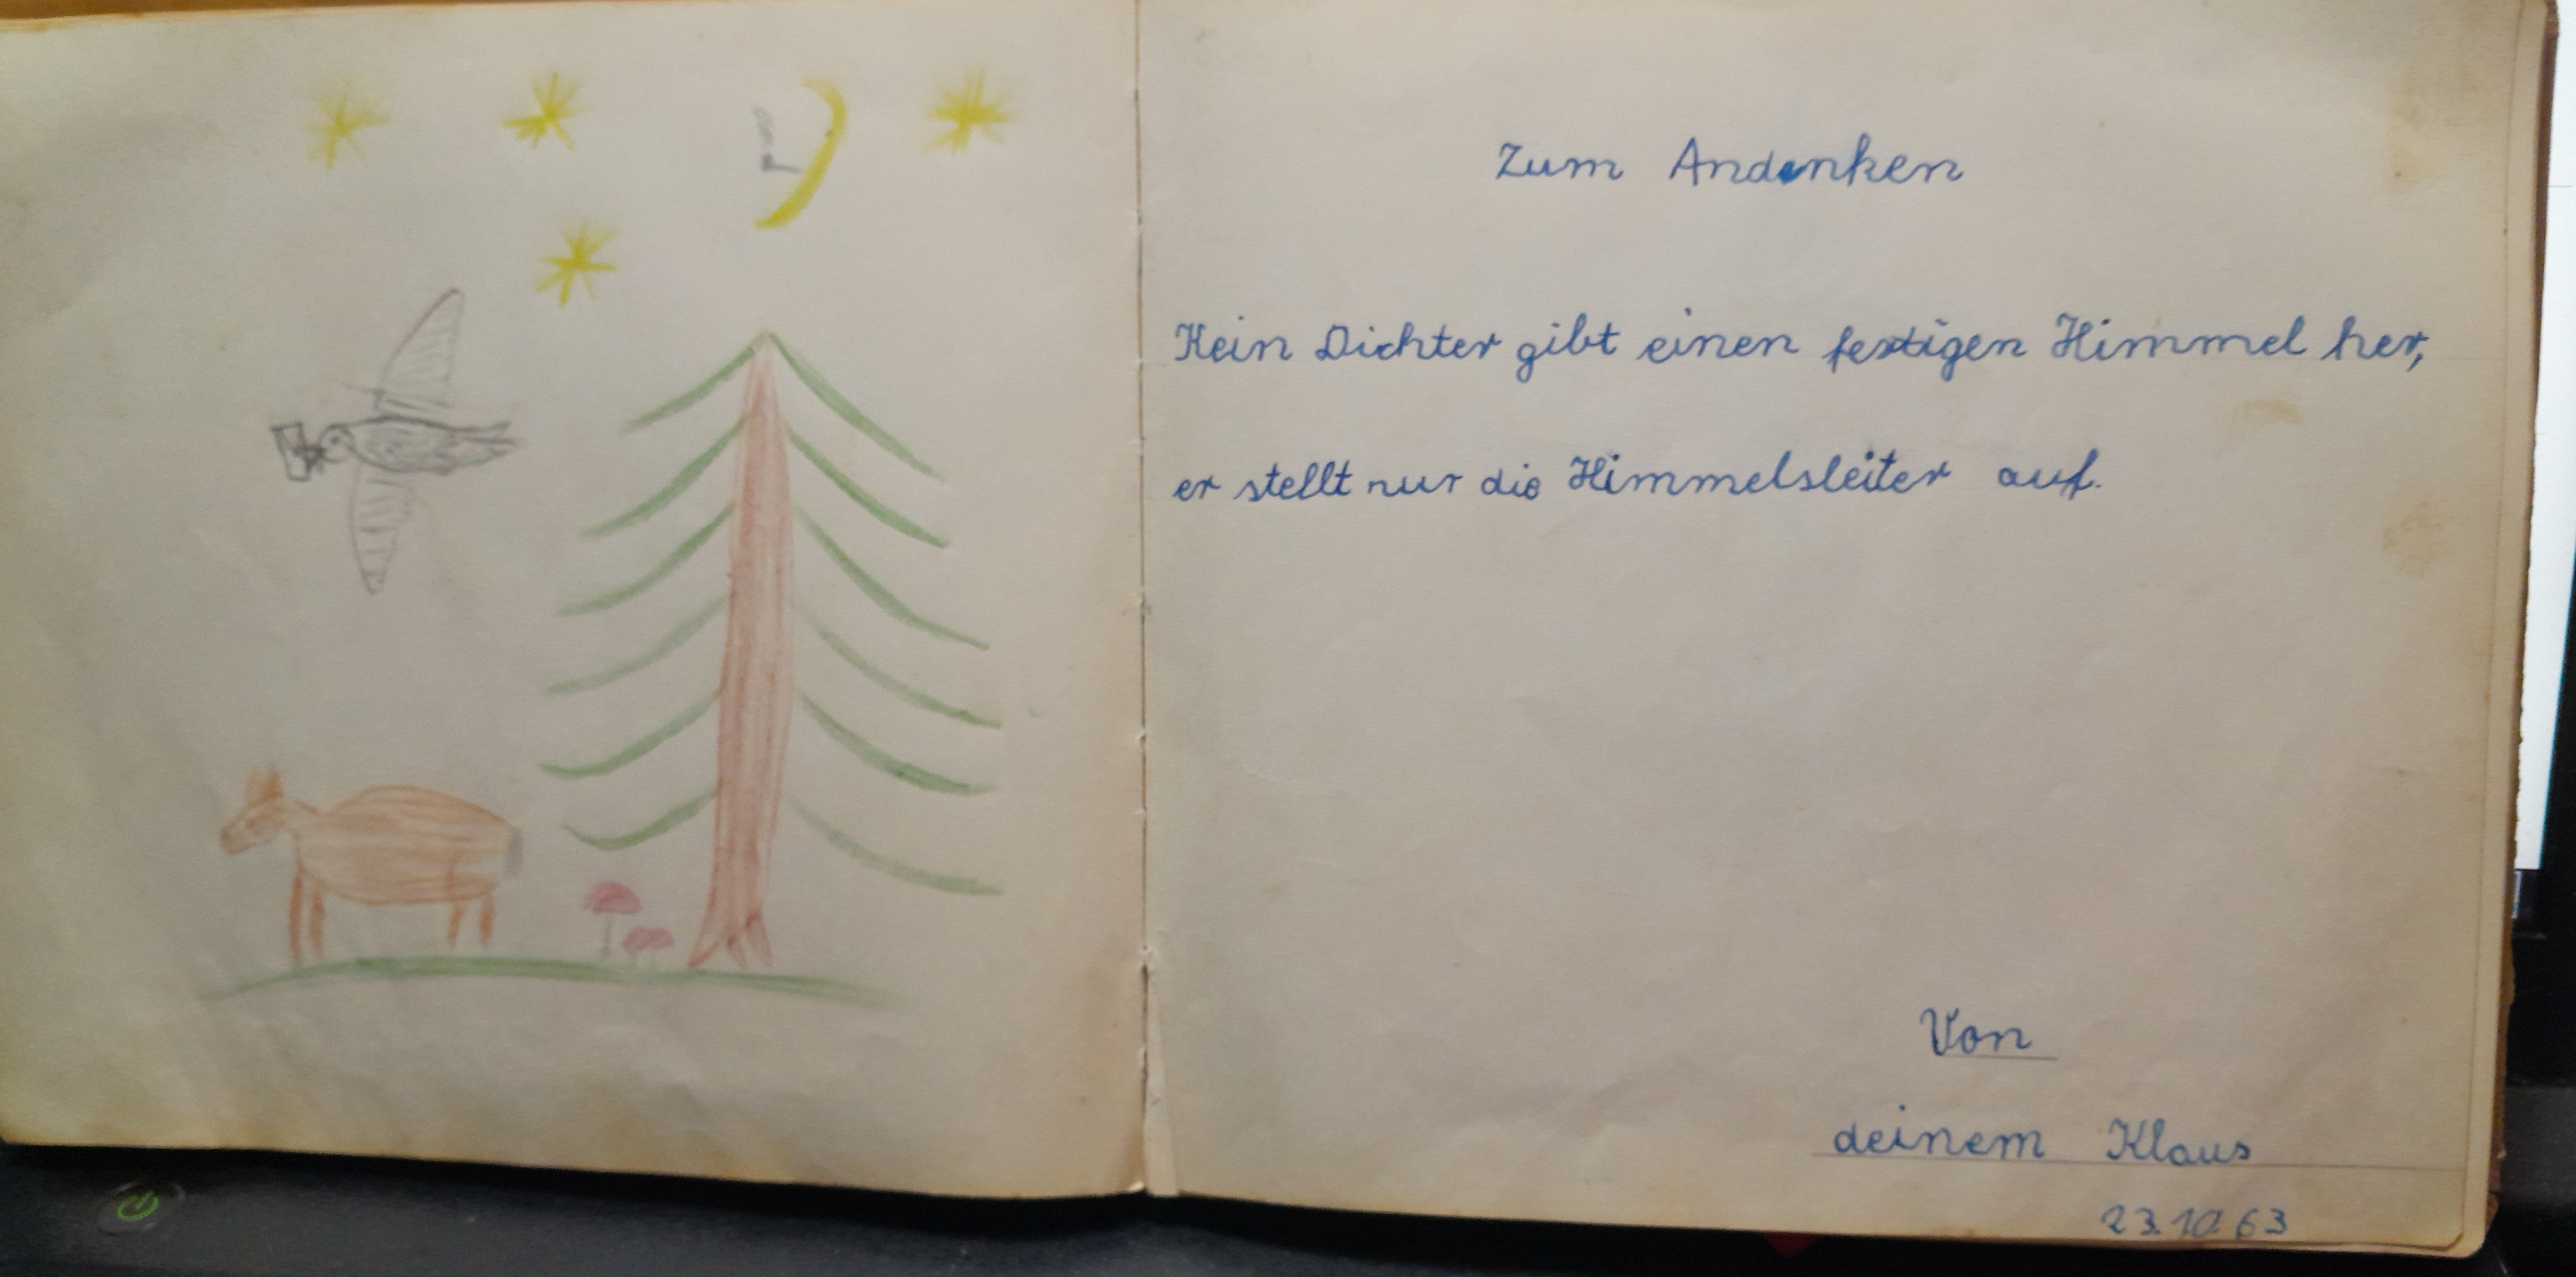 Zum Andenken
Kein Dichter gibt einen fertigen Himmel her,
er stellt nur die Himmelsleiter auf.
Von
deinem Klaus
23.10.63